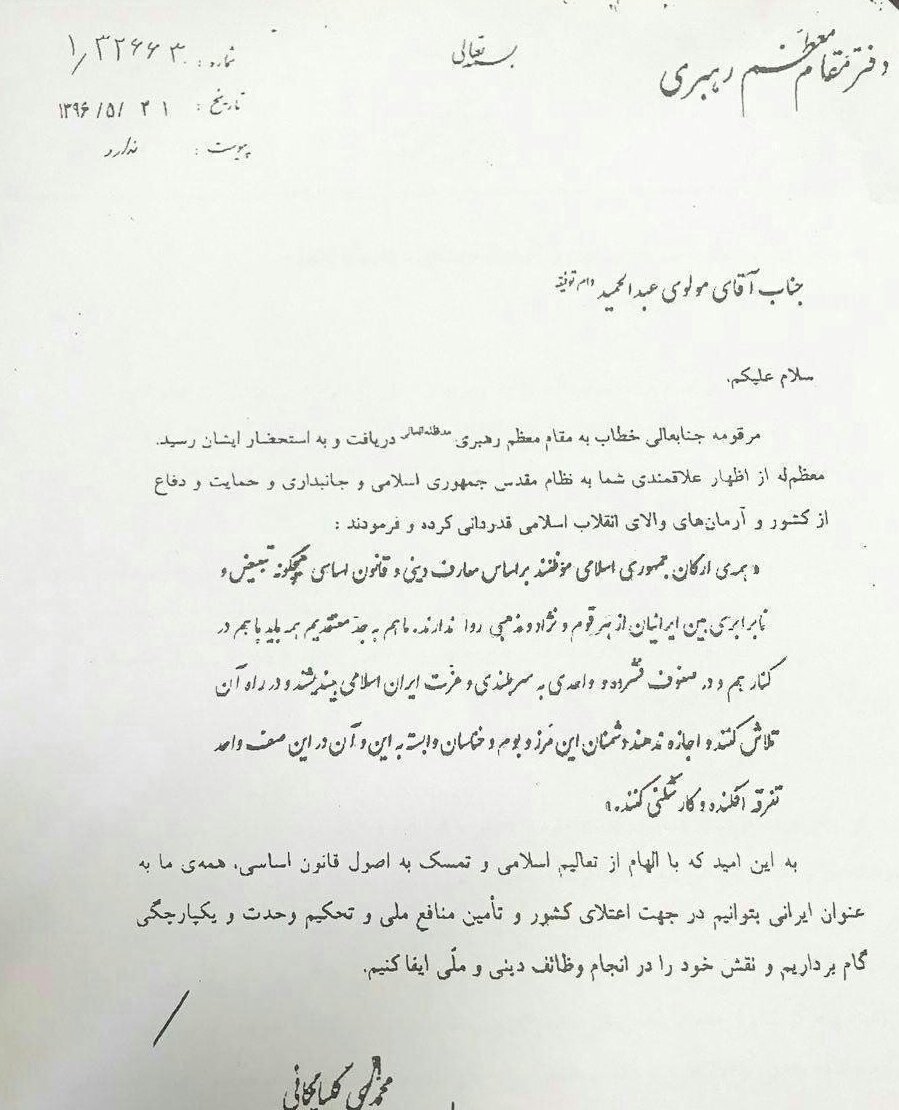 دفتر مقام معظم رهبری
بسمه تعالی
شماره : ۱/۳۲۶۶۳
تاریخ : ۱۳۹۶/۵/۲۱
پیوست : ندارد
جناب آقای مولوی عبدالحمید دام توفیقه
سلام علیکم.
مرقومه جنابعالی خطاب به مقام معظم رهبری مدظله‌العالی دریافت و به استحضار ایشان رسید.
معظم‌له از اظهار علاقمندی شما به نظام مقدس جمهوری اسلامی و جانبداری و حمایت و دفاع
از کشور و آرمان‌های والای انقلاب اسلامی قدردانی کرده و فرمودند :
« همه‌ی ارکان جمهوری اسلامی موظفند براساس معارف دینی و قانون اساسی هیچگونه تبعیض و
نابرابری بین ایرانیان از هر قوم و نژاد و مذهبی روا ندارند. ما هم به جد معتقدیم همه باید با هم در
کنار هم و در صفوف فشرده و واحدی به سربلندی و عزّت ایران اسلامی بیندیشند و در راه آن
تلاش کنند و اجازه ندهند دشمنان این مرز و بوم و خناسان وابسته به این و آن در این صف واحد
تفرقه افکنده و کارشکنی کنند.»
به این امید که با الهام از تعالیم اسلامی و تمسک به اصول قانون اساسی، همه‌ی ما به
عنوان ایرانی بتوانیم در جهت اعتلای کشور و تأمین منافع ملی و تحکیم وحدت و یکپارچگی
گام برداریم و نقش خود را در انجام وظائف دینی و ملّی ایفا کنیم.
محمدی گلپایگانی